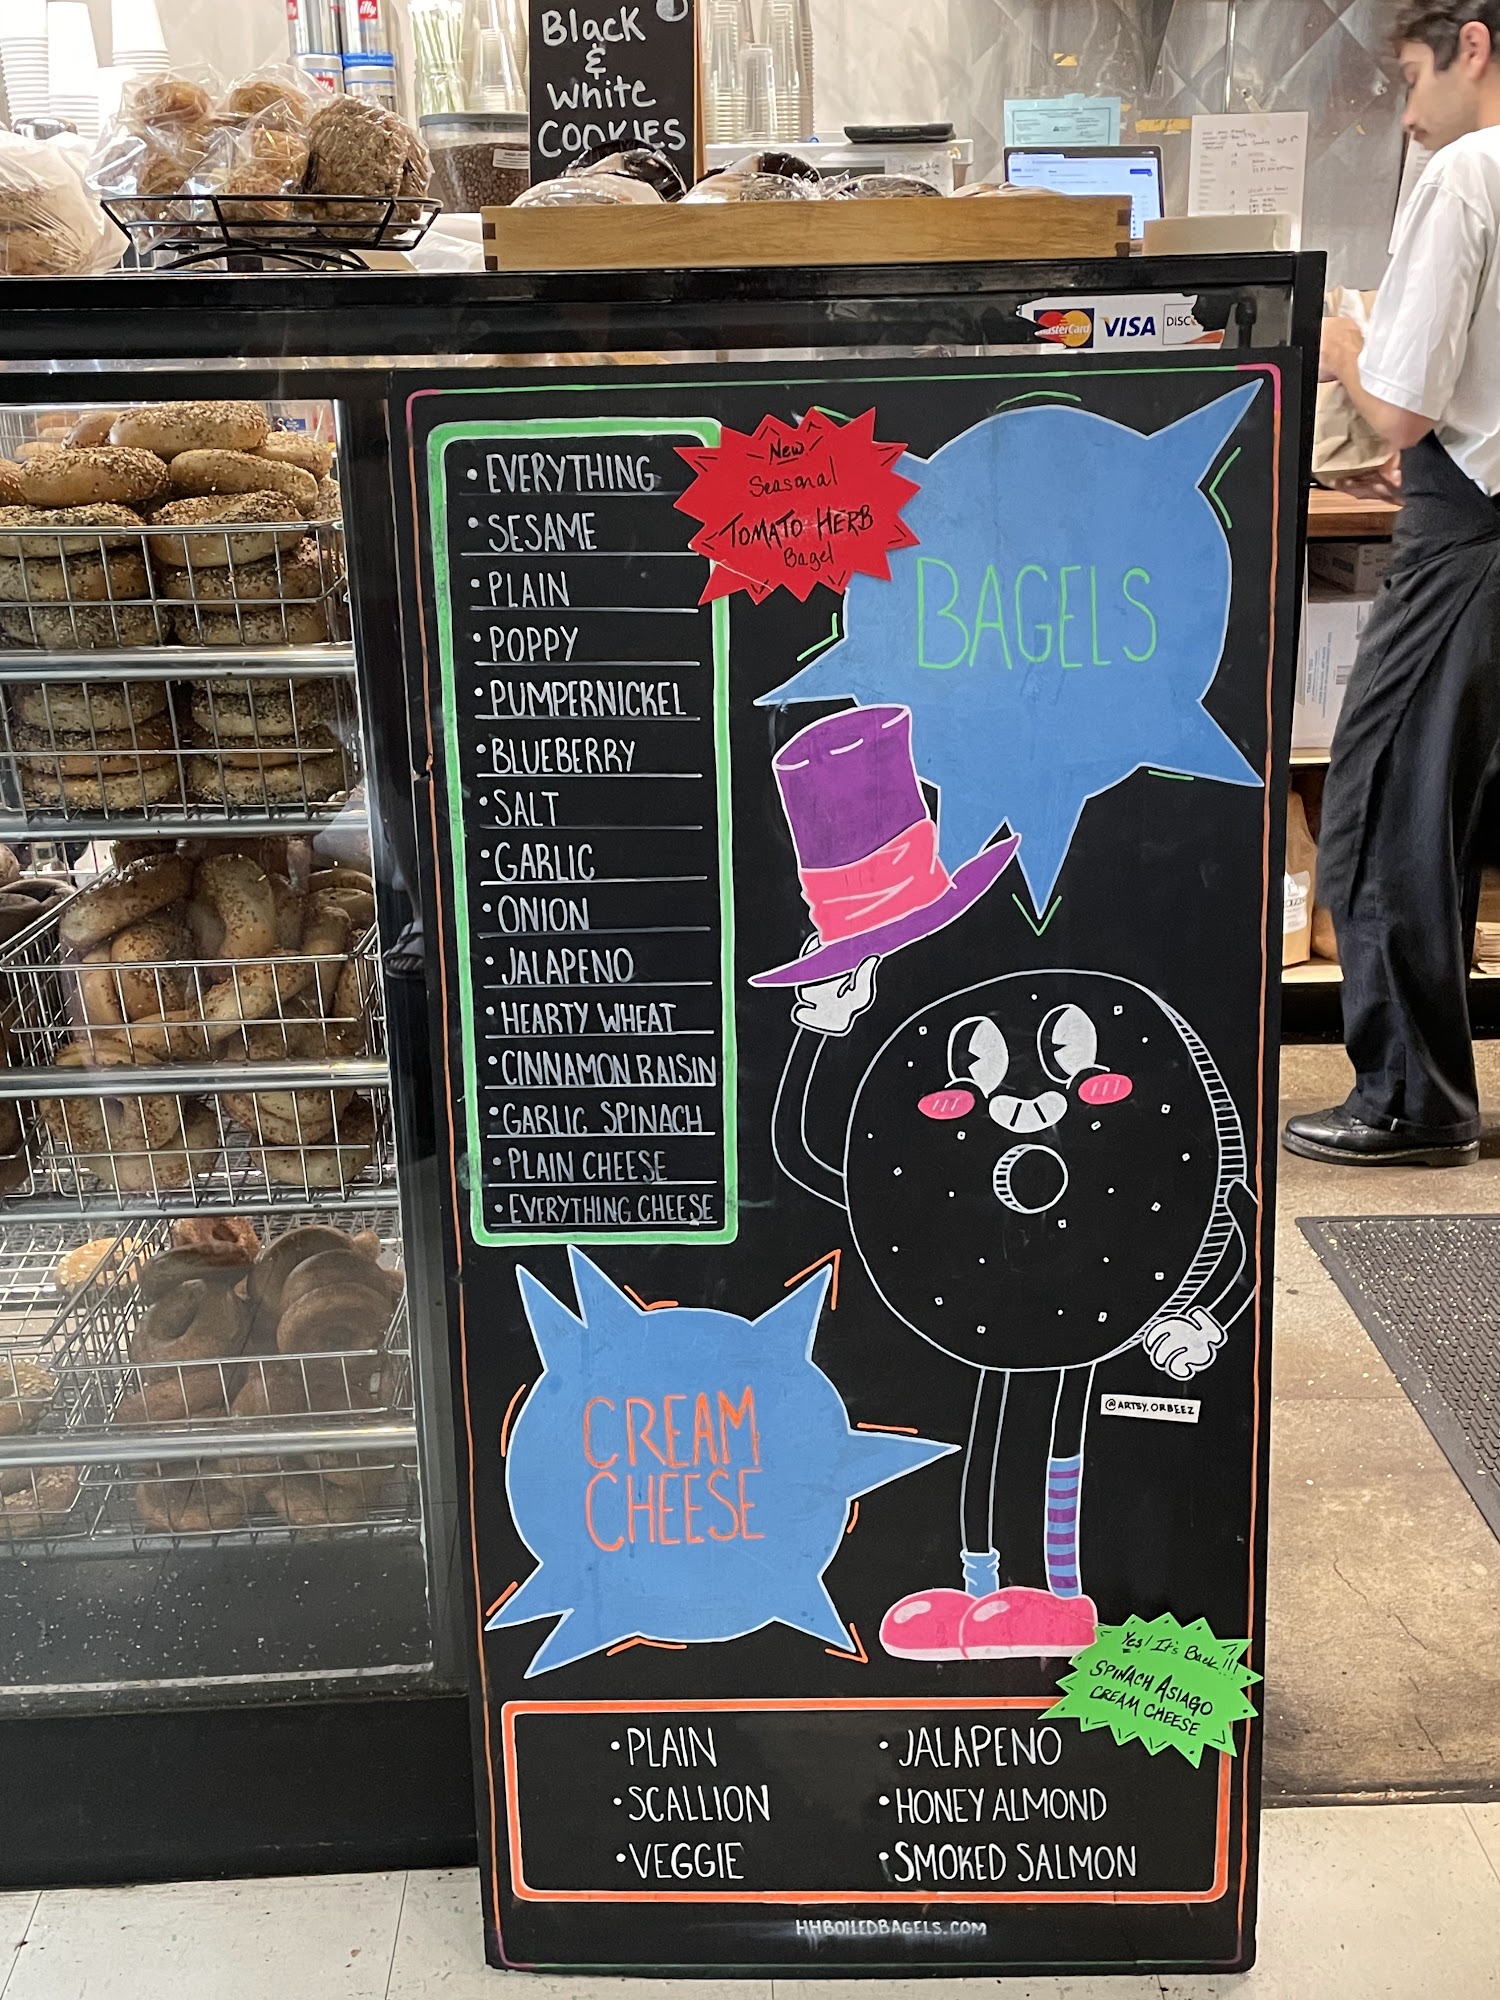 illy
illy
Black
&
White
COOKIES
MasterCard
VISA
DISC
• EVERYTHING
• SESAME
• PLAIN
• POPPY
• PUMPERNICKEL
• BLUEBERRY
• SALT
• GARLIC
• ONION
• JALAPENO
• HEARTY WHEAT
• CINNAMON RAISIN
• GARLIC SPINACH
• PLAIN CHEESE
• EVERYTHING CHEESE
New
Seasonal
TOMATO HERB
Bagel
BAGELS
CREAM
CHEESE
@ARTSY.ORBEEZ
Yes! It's Back!!!
SPINACH ASIAGO
CREAM CHEESE
• PLAIN
• SCALLION
• VEGGIE
• JALAPENO
• HONEY ALMOND
• SMOKED SALMON
HHBOILEDBAGELS.COM